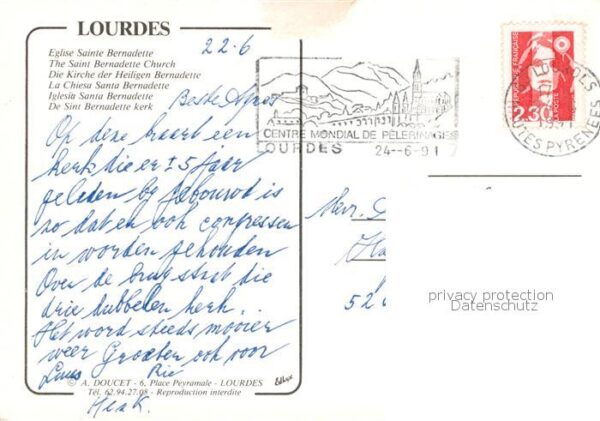 LOURDES
22.6
Eglise Sainte Bernadette
The Saint Bernadette Church
Die Kirche der Heiligen Bernadette
La Chiesa Santa Bernadette
Iglesia Santa Bernadette
De Sint Bernadette kerk
Beste Agnes
Op deze kaart een
kerk die er ± 5 jaar
geleden by gebouwd is
zo dat en ook congressen
in worden gehouden
Over de brug staat die
drie dubbelen kerk..
Het word steeds mooier
weer Groeten ook voor
Ria
© A. DOUCET - 6, Place Peyramale - LOURDES
Tél. 62.94.27.08 - Reproduction interdite
Henk.
CENTRE MONDIAL DE PÈLERINAGES
LOURDES 24--6-91
REPUBLIQUE FRANÇAISE
LA POSTE
2.30
LOURDES
HAUTES PYRENEES
1991
Hr.
Ha
52
privacy protection
Datenschutz